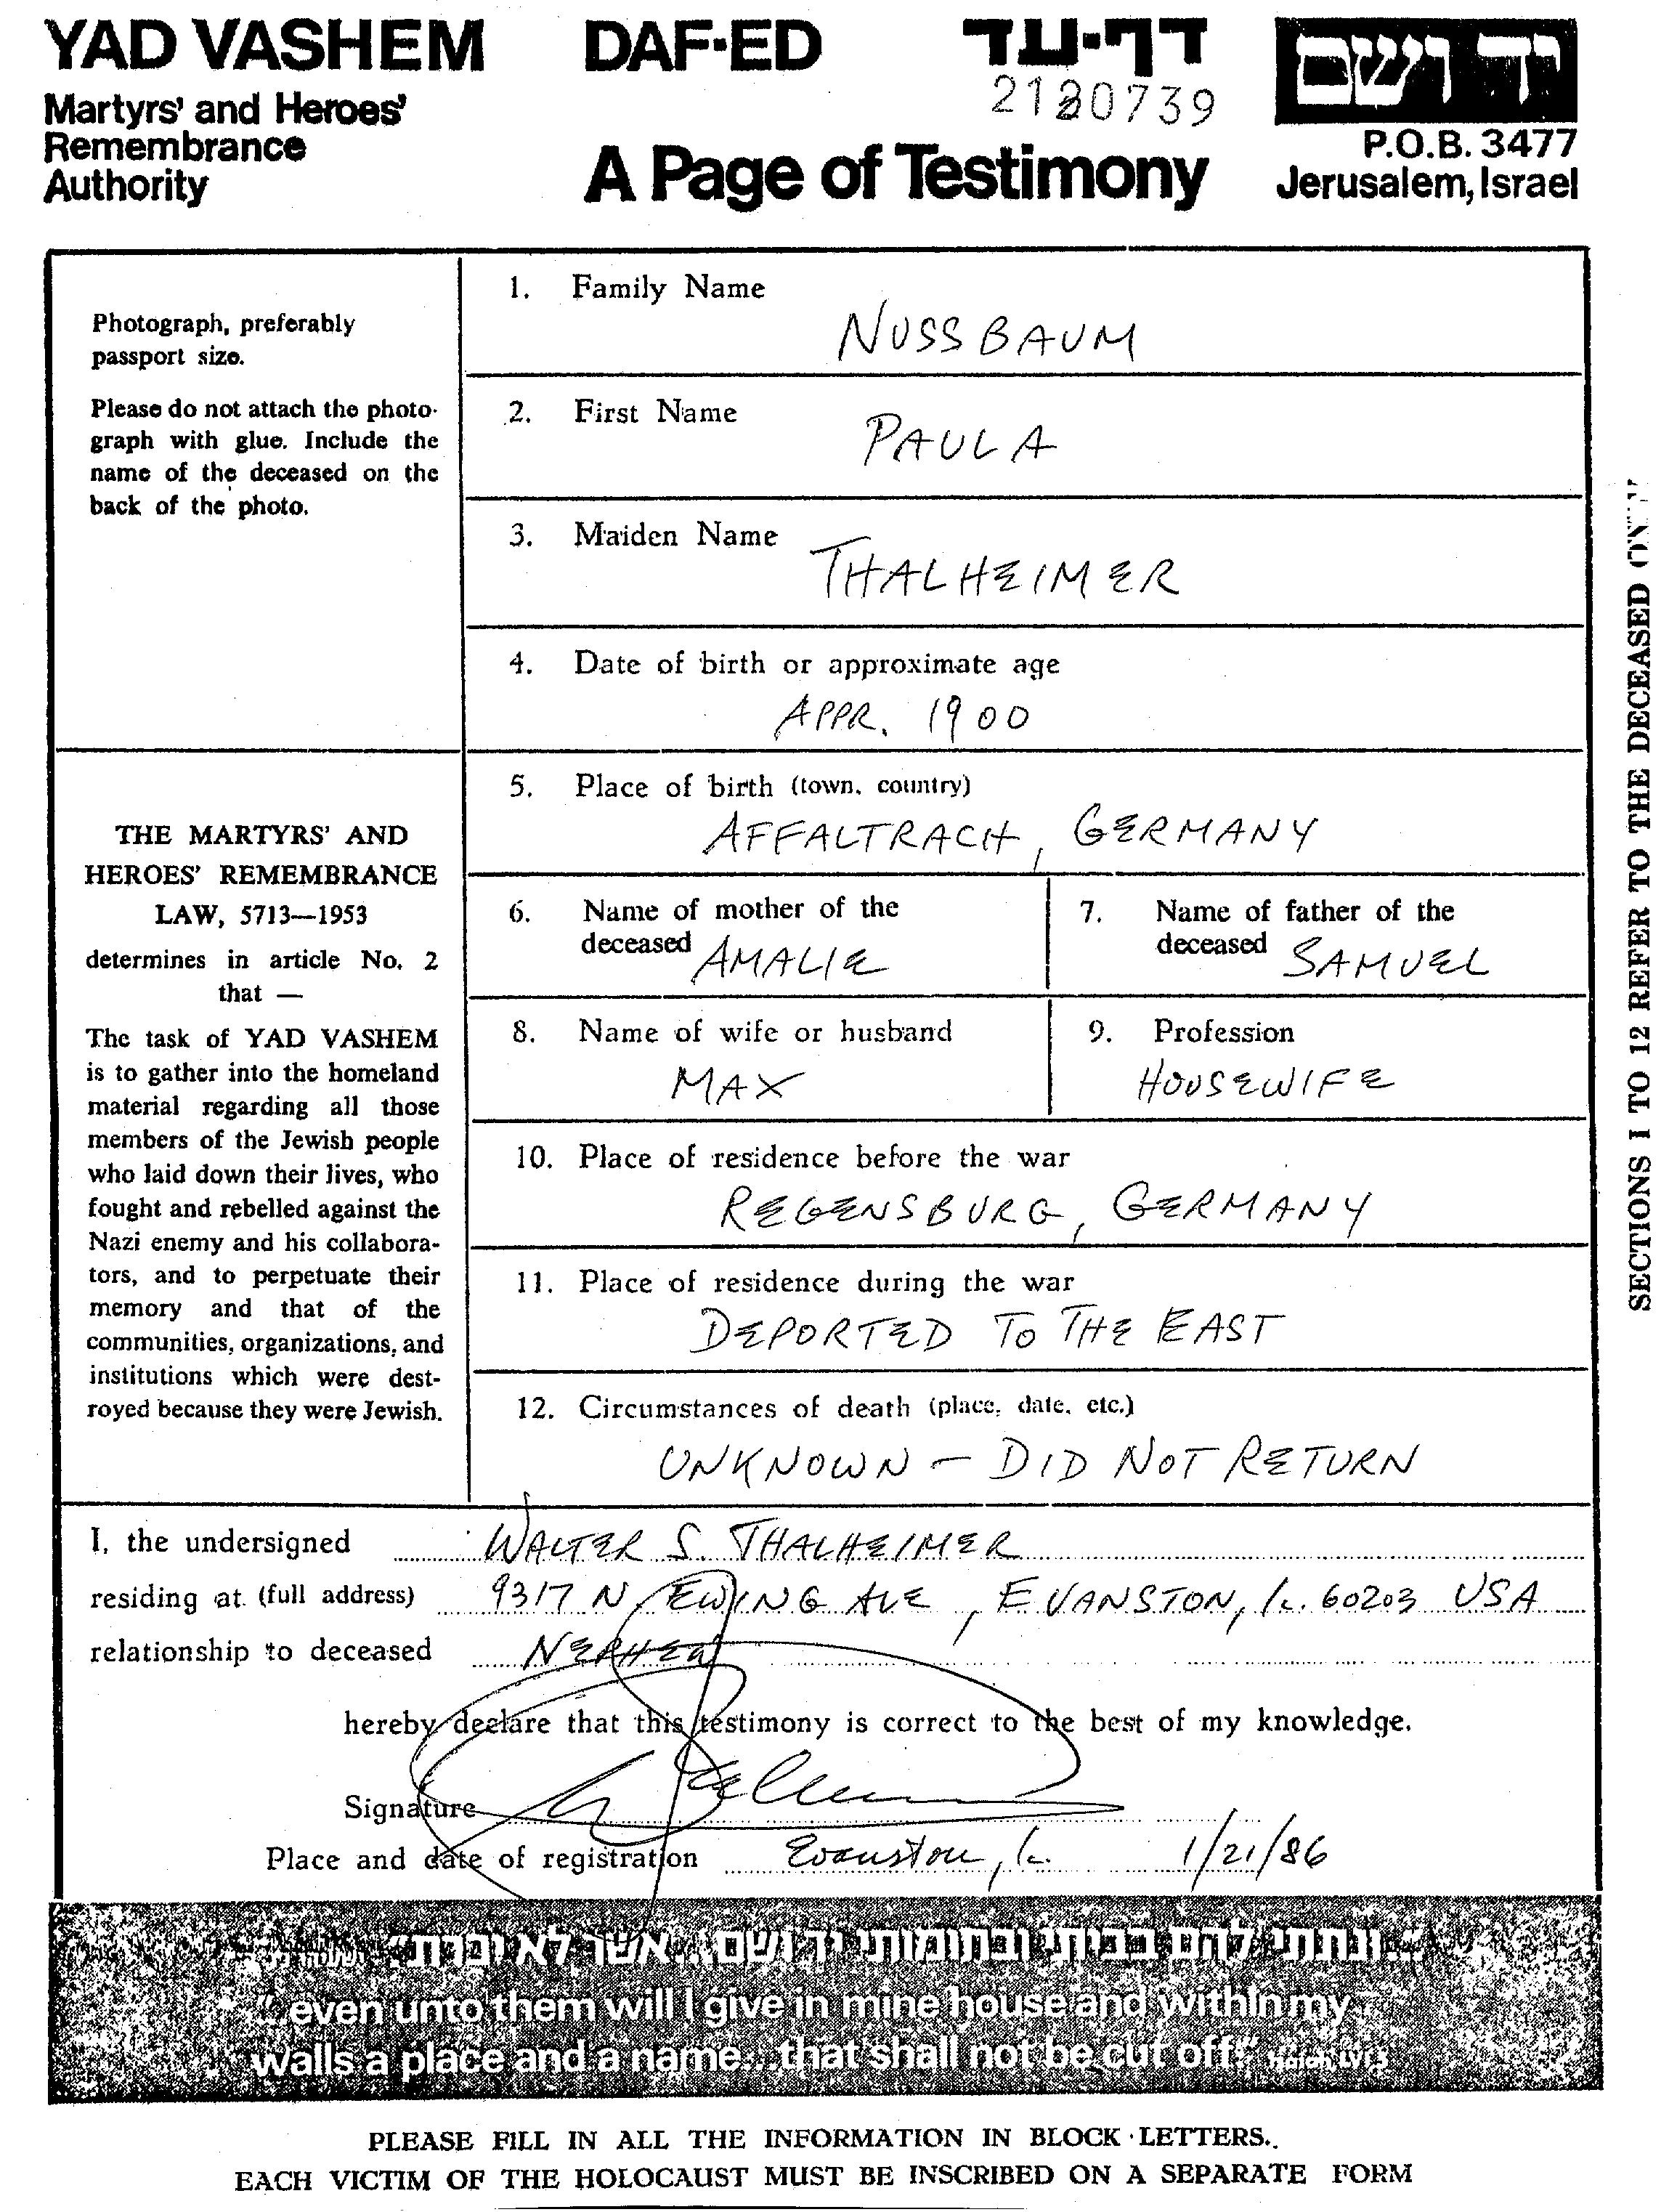 YAD VASHEM DAF-ED דף-עד יד ושם
Martyrs' and Heroes'
Remembrance
Authority
2130739
A Page of Testimony
P.O.B. 3477
Jerusalem, Israel
Photograph, preferably
passport size.
Please do not attach the photo-
graph with glue. Include the
name of the deceased on the
back of the photo.
THE MARTYRS' AND
HEROES' REMEMBRANCE
LAW, 5713—1953
determines in article No. 2
that —
The task of YAD VASHEM
is to gather into the homeland
material regarding all those
members of the Jewish people
who laid down their lives, who
fought and rebelled against the
Nazi enemy and his collabora-
tors, and to perpetuate their
memory and that of the
communities, organizations, and
institutions which were dest-
royed because they were Jewish.
1. Family Name
NUSSBAUM
2. First Name
PAULA
3. Maiden Name
THALHEIMER
4. Date of birth or approximate age
APPR. 1900
5. Place of birth (town, country)
AFFALTRACH, GERMANY
6. Name of mother of the
deceased AMALIE
7. Name of father of the
deceased SAMUEL
8. Name of wife or husband
MAX
9. Profession
HOUSEWIFE
10. Place of residence before the war
REGENSBURG, GERMANY
11. Place of residence during the war
DEPORTED TO THE EAST
12. Circumstances of death (place, date, etc.)
UNKNOWN — DID NOT RETURN
SECTIONS 1 TO 12 REFER TO THE DECEASED
I, the undersigned WALTER S. THALHEIMER
residing at (full address) 9317 N. EWING AVE, EVANSTON, IL. 60203 USA
relationship to deceased NEPHEW
hereby declare that this testimony is correct to the best of my knowledge.
Signature
Place and date of registration Evanston, IL. 1/21/86
"ונתתי להם בביתי ובחומותי יד ושם...אשר לא יכרת"
"even unto them will I give in mine house and within my
walls a place and a name...that shall not be cut off." Isaiah LVI 5
PLEASE FILL IN ALL THE INFORMATION IN BLOCK LETTERS.
EACH VICTIM OF THE HOLOCAUST MUST BE INSCRIBED ON A SEPARATE FORM